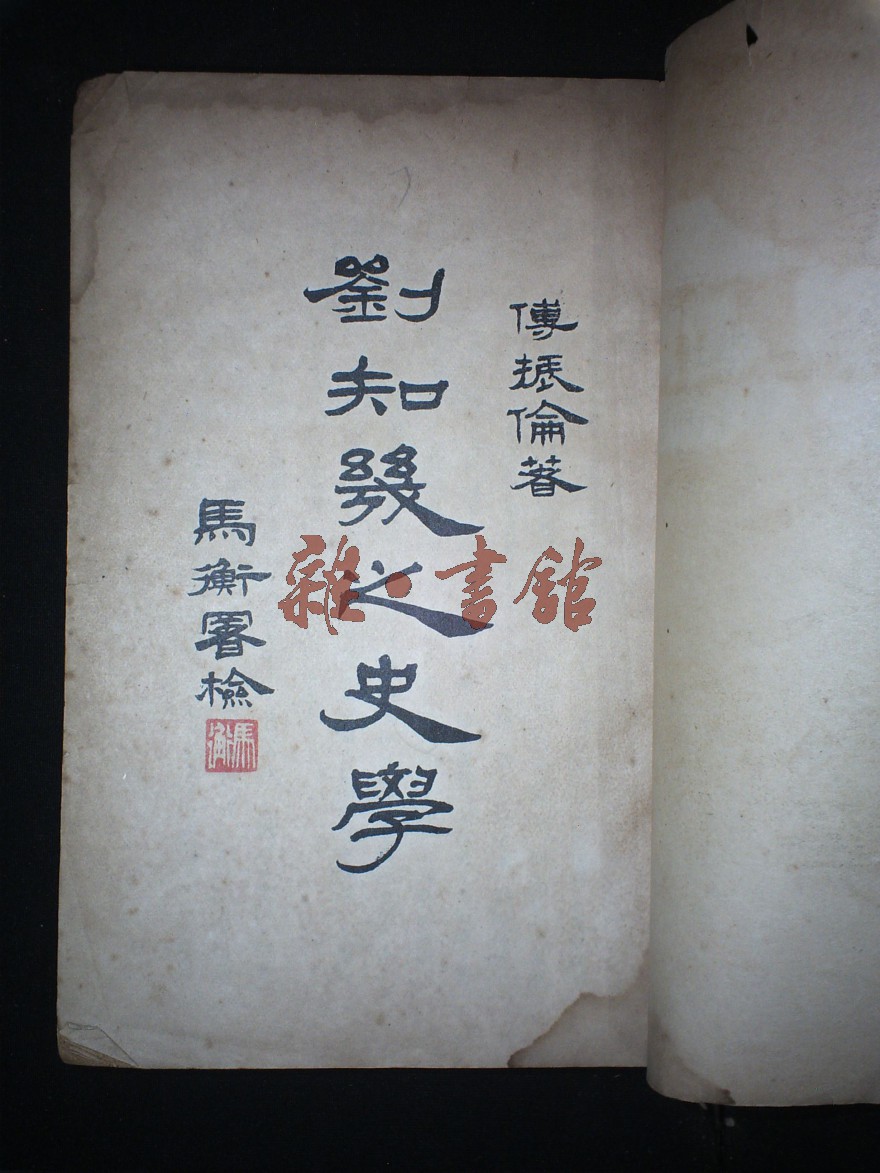 傅振倫著
劉知幾之史學
馬衡署檢
馬衡
雜·書館